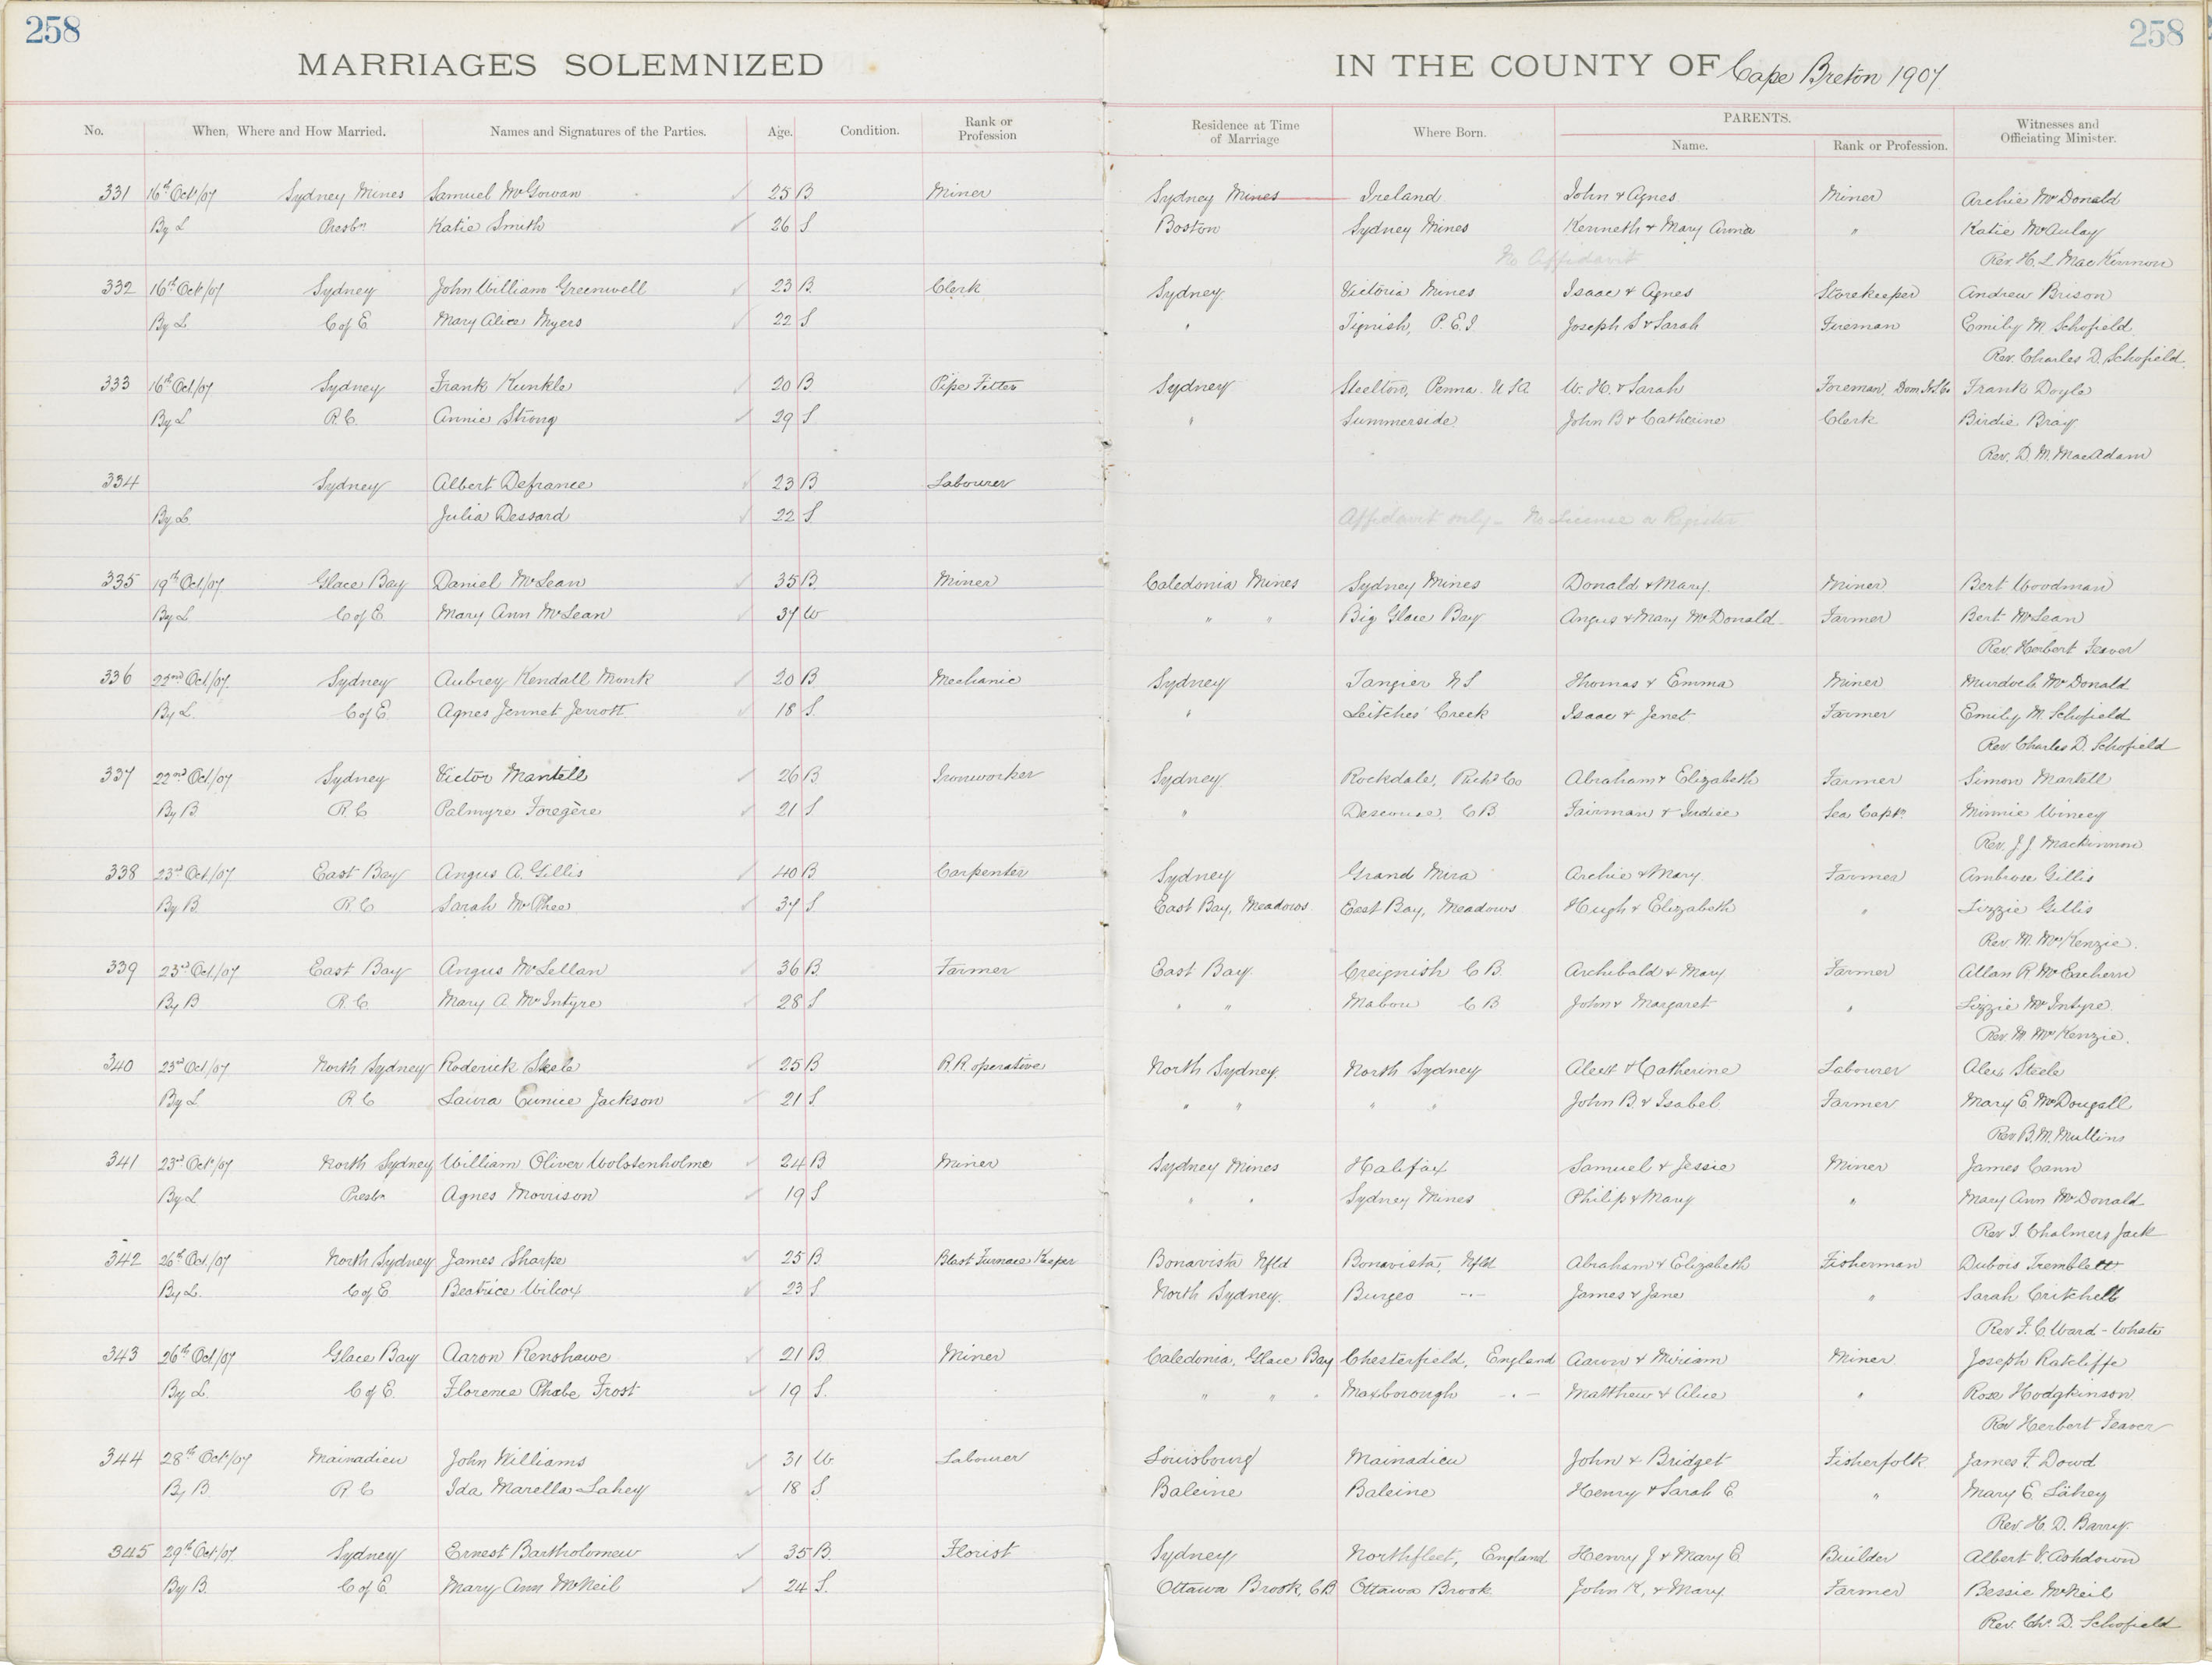 258 258
MARRIAGES SOLEMNIZED IN THE COUNTY OF Cape Breton 1907
No. When, Where and How Married. Names and Signatures of the Parties. Age. Condition. Rank or Profession Residence at Time of Marriage Where Born. PARENTS. Name. Rank or Profession. Witnesses and Officiating Minister.
331 16th Oct/07 Sydney Mines Samuel McGowan 25 B Miner Sydney Mines Ireland John & Agnes Miner Archie McDonald
By L Presbn Katie Smith 26 S Boston Sydney Mines Kenneth & Mary Anna " Katie McAulay
No Affidavit Rev. H. L. MacKinnon
332 16th Oct/07 Sydney John William Greenwell 23 B Clerk Sydney Victoria Mines Isaac & Agnes Storekeeper Andrew Brison
By L C of E Mary Alice Myers 22 S " Tignish, P.E.I. Joseph S & Sarah Fireman Emily M. Schofield
Rev. Charles D. Schofield
333 16th Oct/07 Sydney Frank Kunkle 20 B Pipe Fitter Sydney Steelton, Penna. U S A W. H. & Sarah Foreman, Dom. I. & S. Co. Frank Doyle
By L R.C. Annie Strong 29 S " Summerside John B & Catherine Clerk Birdie Bray
Rev. D. M. MacAdam
334 Sydney Albert Defrance 23 B Labourer
By L Julia Dessard 22 S Affidavit only - No License or Register
335 19th Oct/07 Glace Bay Daniel McLean 35 B Miner Caledonia Mines Sydney Mines Donald & Mary Miner Bert Woodman
By L C of E Mary Ann McLean 37 W " " Big Glace Bay Angus & Mary McDonald Farmer Bert McLean
Rev. Herbert Feaver
336 22nd Oct/07 Sydney Aubrey Kendall Monk 20 B Mechanic Sydney Tangier N S Thomas & Emma Miner Murdoch McDonald
By L. C of E Agnes Jennet Jerrott 18 S " Leitches' Creek Isaac & Jenet Farmer Emily M. Schofield
Rev. Charles D. Schofield
337 22nd Oct/07 Sydney Victor Mantell 26 B Ironworker Sydney Rockdale, Richd Co Abraham & Elizabeth Farmer Simon Martell
By B R.C Palmyre Foregère 21 S " Descouse, C B Fairman & Judice Sea Captn Minnie Wincey
Rev. J. J. Mackinnon
338 23rd Oct/07 East Bay Angus A. Gillis 40 B Carpenter Sydney Grand Mira Archie & Mary Farmer Ambrose Gillis
By B R.C Sarah McPhee 37 S East Bay, Meadows East Bay, Meadows Hugh & Elizabeth " Lizzie Gillis
Rev. M. McKenzie.
339 23rd Oct/07 East Bay Angus McLellan 36 B Farmer East Bay Creignish C B. Archibald & Mary Farmer Allan R McEachern
By B R.C. Mary A McIntyre 28 S " " Mabou C B John & Margaret " Lizzie McIntyre
Rev. M. McKenzie.
340 23rd Oct/07 North Sydney Roderick Steele 25 B R.R. operative North Sydney North Sydney Alext & Catherine Labourer Alex Steele
By L R.C Laura Eunice Jackson 21 S " " " " John B. & Isabel Farmer Mary E. McDougall
Rev. B. M. Mullins
341 23rd Oct/07 North Sydney William Oliver Wolstenholme 24 B Miner Sydney Mines Halifax Samuel & Jessie Miner James Cann
By L Presbn Agnes Morrison 19 S " " Sydney Mines Philip & Mary " Mary Ann McDonald
Rev T. Chalmers Jack
342 26th Oct/07 North Sydney James Sharpe 25 B Blast Furnace Keeper Bonavista Nfld Bonavista, Nfld Abraham & Elizabeth Fisherman Dubois Tremblett
By L. C of E Beatrice Wilcox 23 S North Sydney. Burgeo -"- James & Jane " Sarah Critchell
Rev F. C. Ward-Whate
343 26th Oct/07 Glace Bay Aaron Renshawe 21 B Miner Caledonia, Glace Bay Chesterfield, England Aaron & Miriam Miner Joseph Ratcliffe
By L. C of E. Florence Phebe Frost 19 S. " " " Maxborough -"- Matthew & Alice " Rose Hodgkinson
Rev Herbert Feaver
344 28th Oct/07 Mainadieu John Williams 31 W Labourer Louisbourg Mainadieu John & Bridget Fisherfolk James F Dowd
By B. R.C Ida Marella Lahey 18 S Baleine Baleine Henry & Sarah E " Mary E Lahey
Rev. H. D. Barry.
345 29th Oct/07 Sydney Ernest Bartholomew 35 B. Florist Sydney Northfleet, England Henry J & Mary E Builder Albert V. Ashdown
By B. C of E. Mary Ann McNeil 24 S. Ottawa Brook, C B Ottawa Brook John K. & Mary Farmer Bessie McNeil
Rev. Chs. D. Schofield